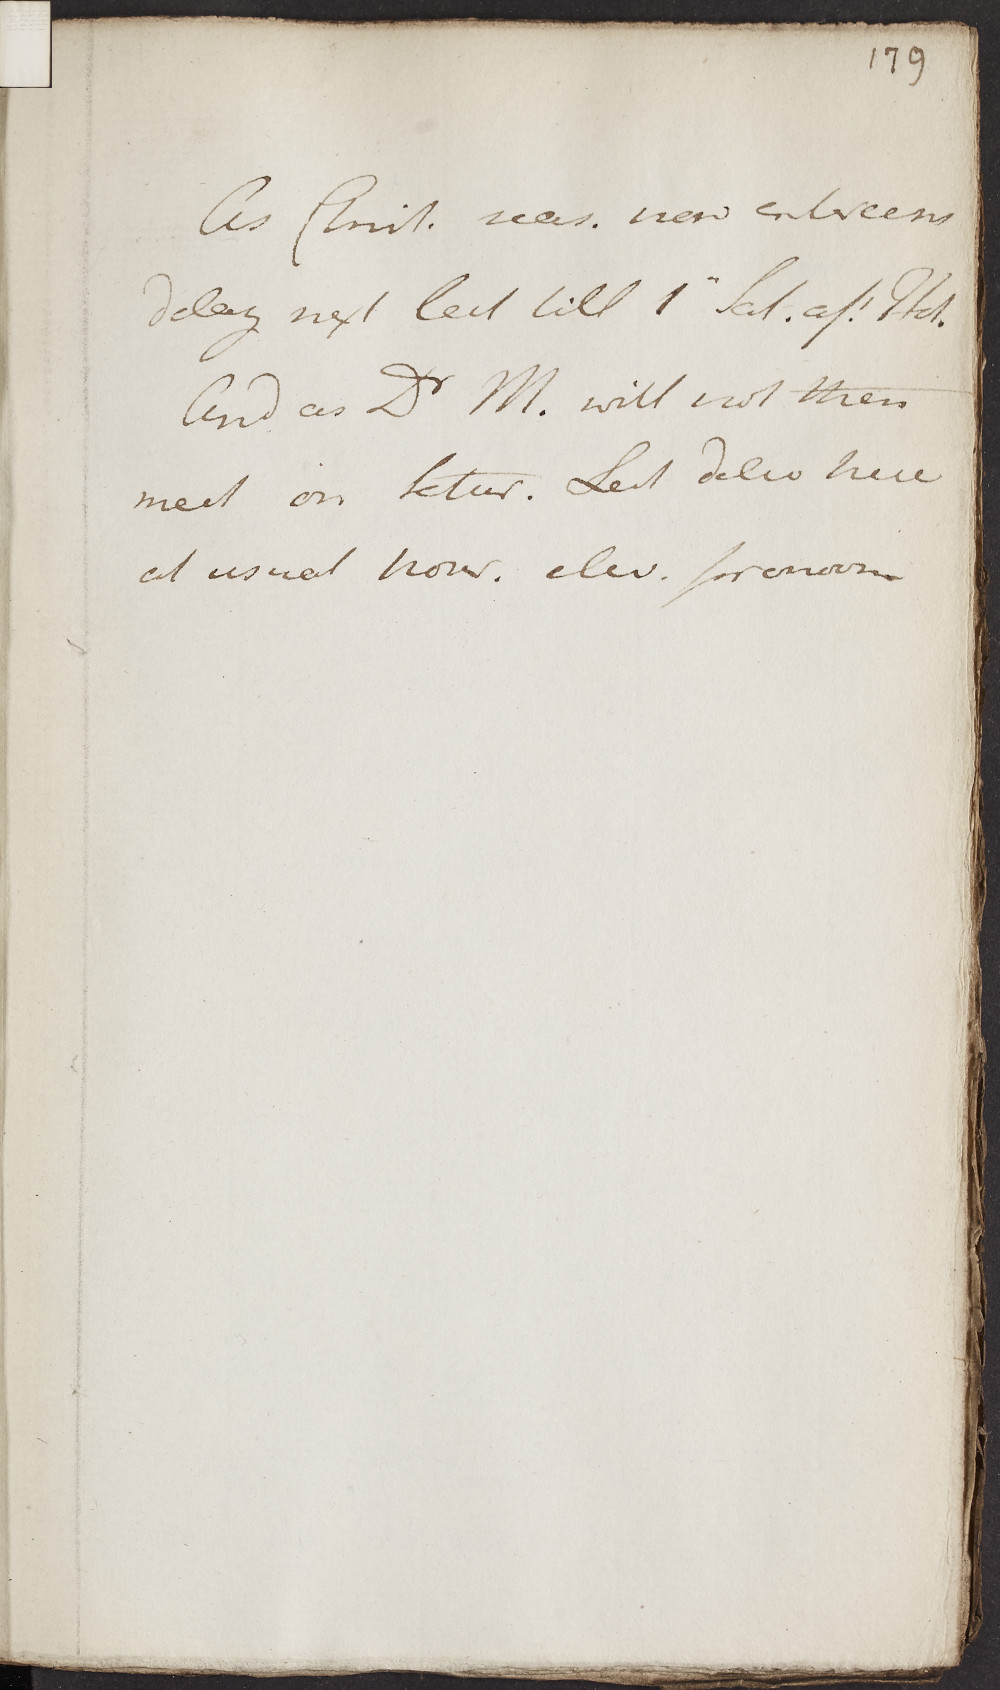 179
As Christ. seas. now interveens
delay next lect till 1st Sat. aft. Hol.
And as Dr M. will not then
meet on Satur. Lect deliv here
at usual hour. elev. forenoon